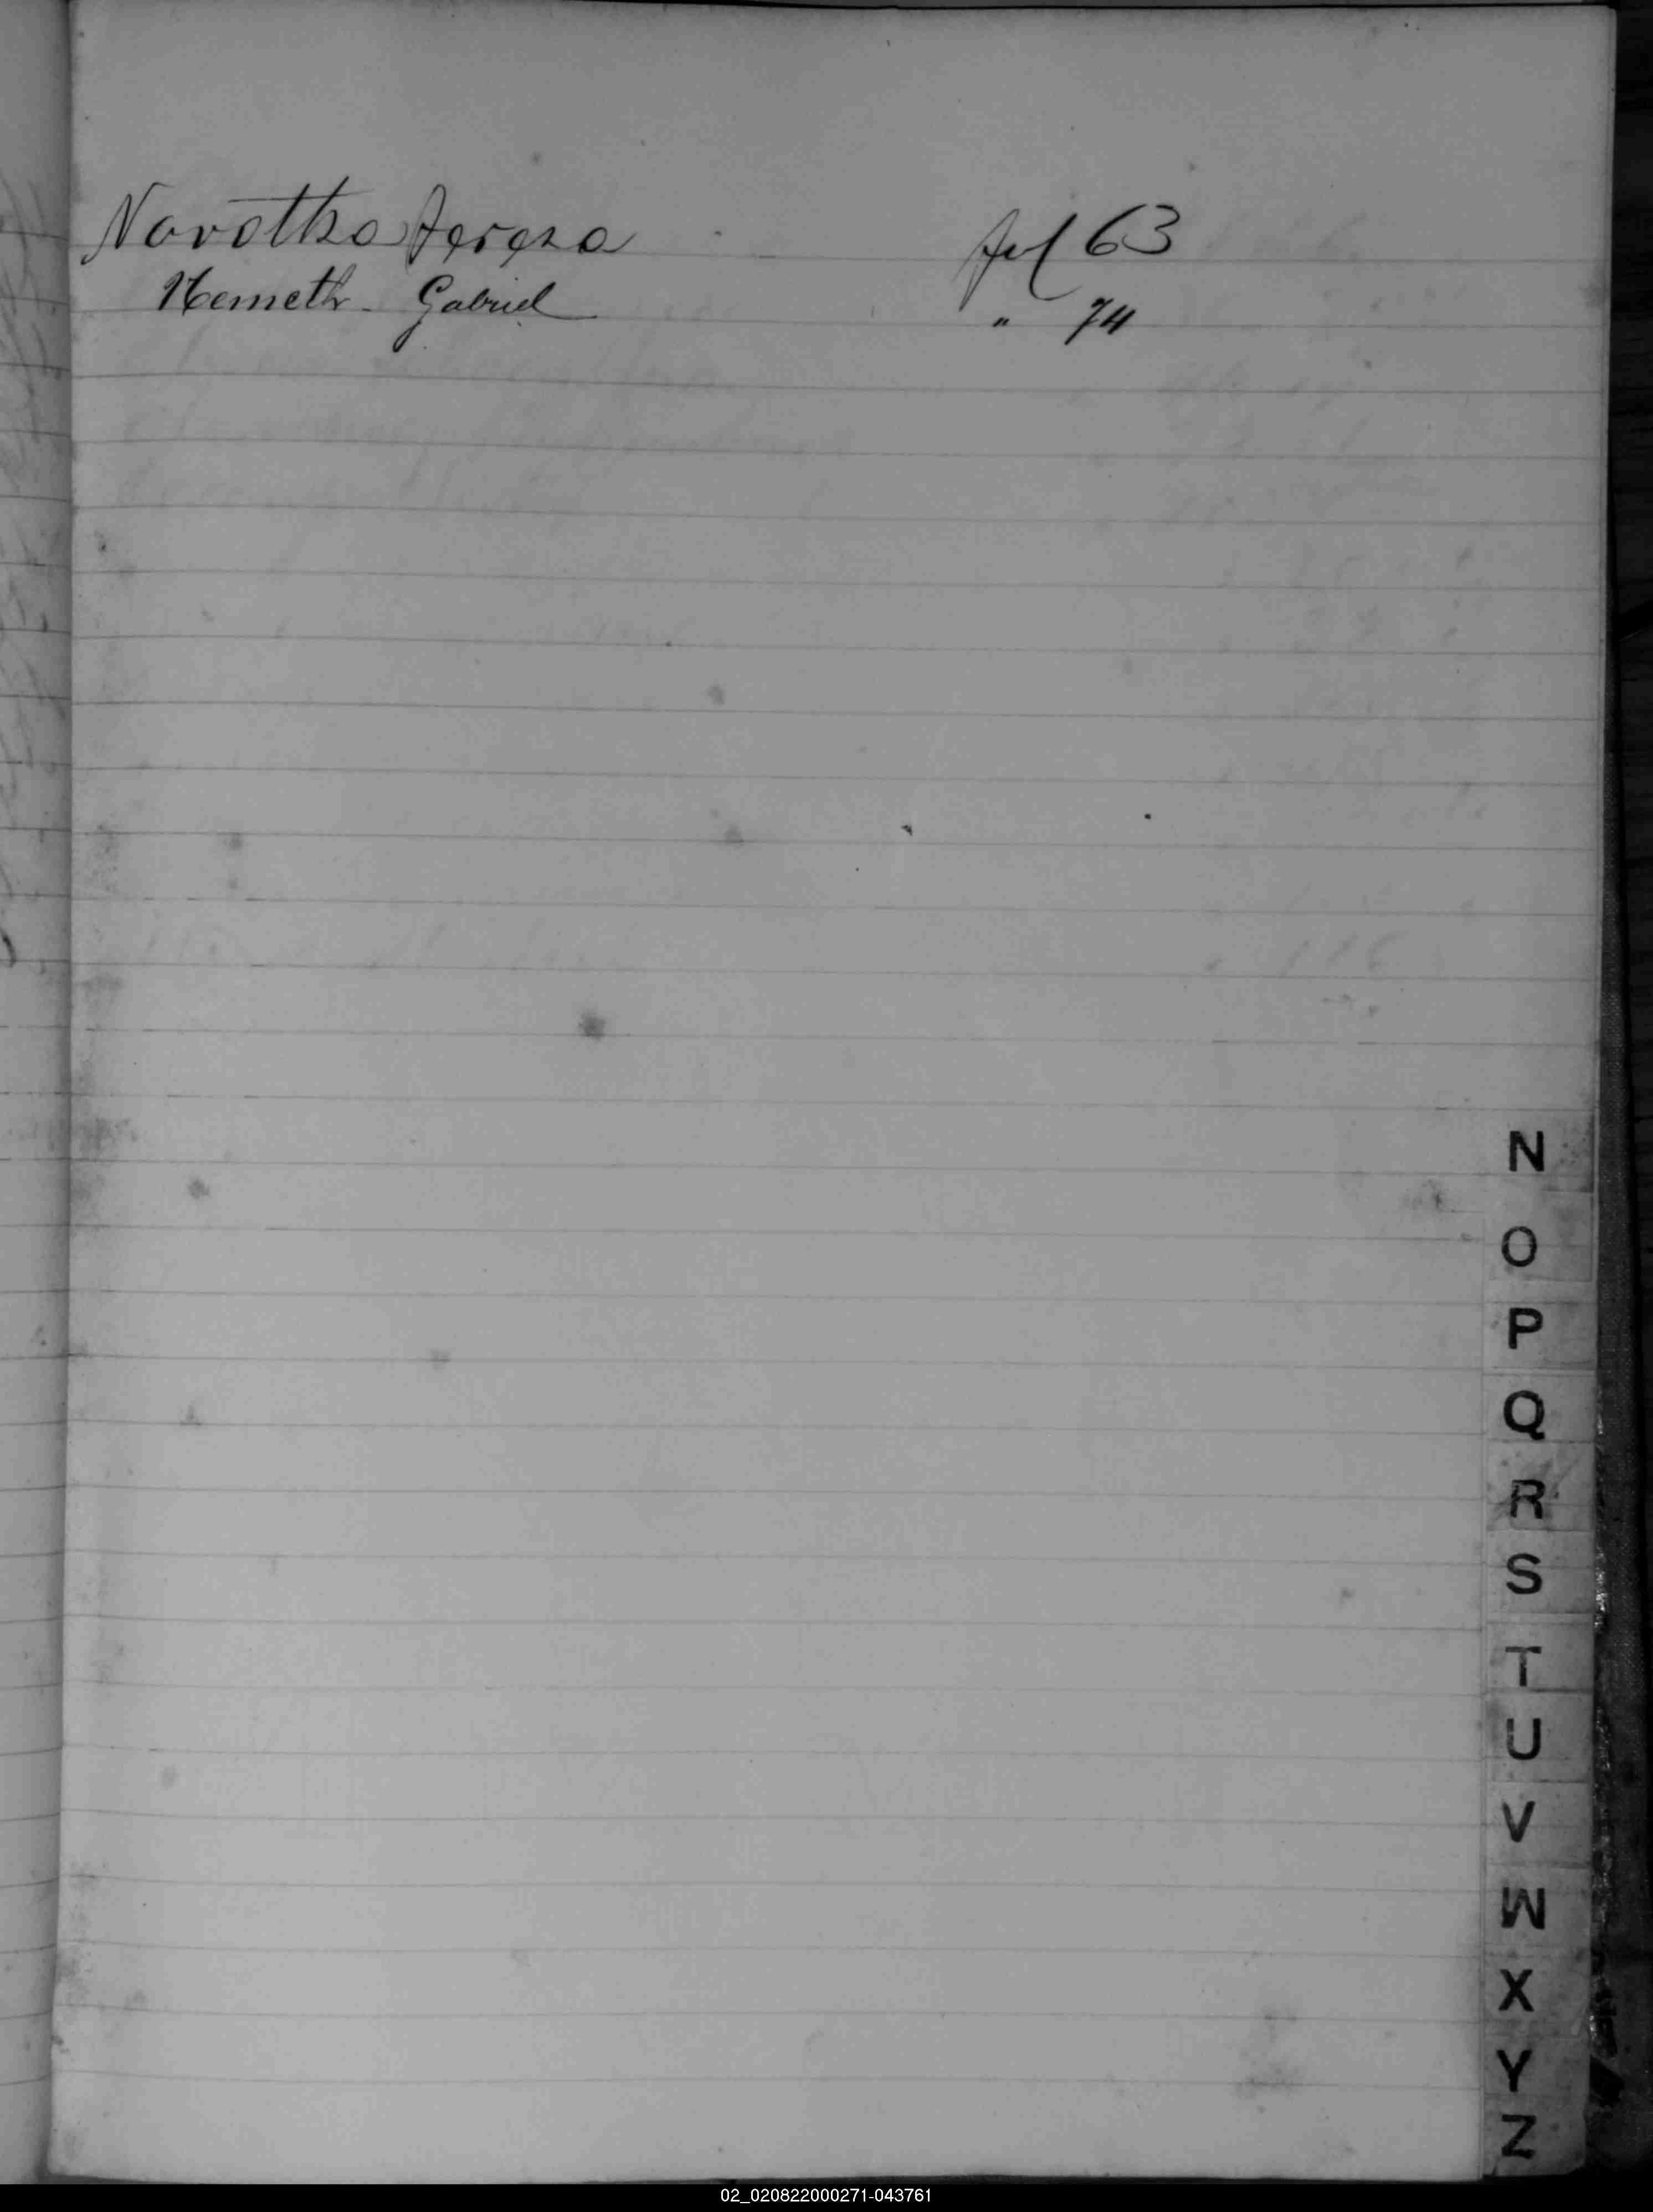 Novotka Tereza fol 63
Nemeth Gabriel " 74
N
O
P
Q
R
S
T
U
V
W
X
Y
Z
02_020822000271-043761